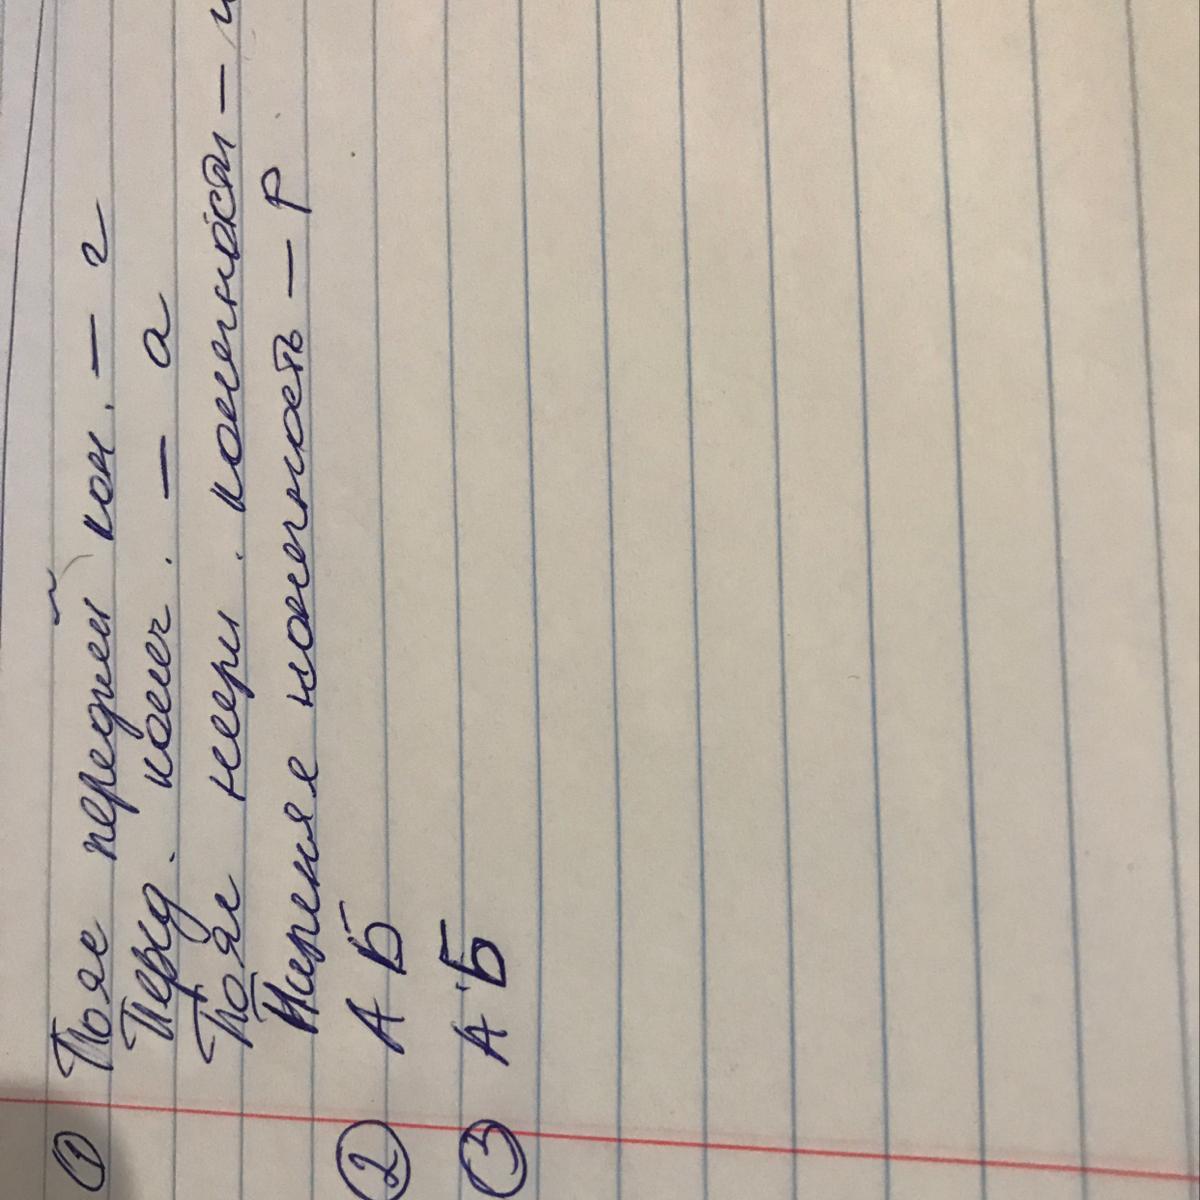 ① Пояс передней кон. – г
Перед. конеч. – а
Пояс нижн. конечности –
Нижняя конечность – Р
② А Б
③ А Б